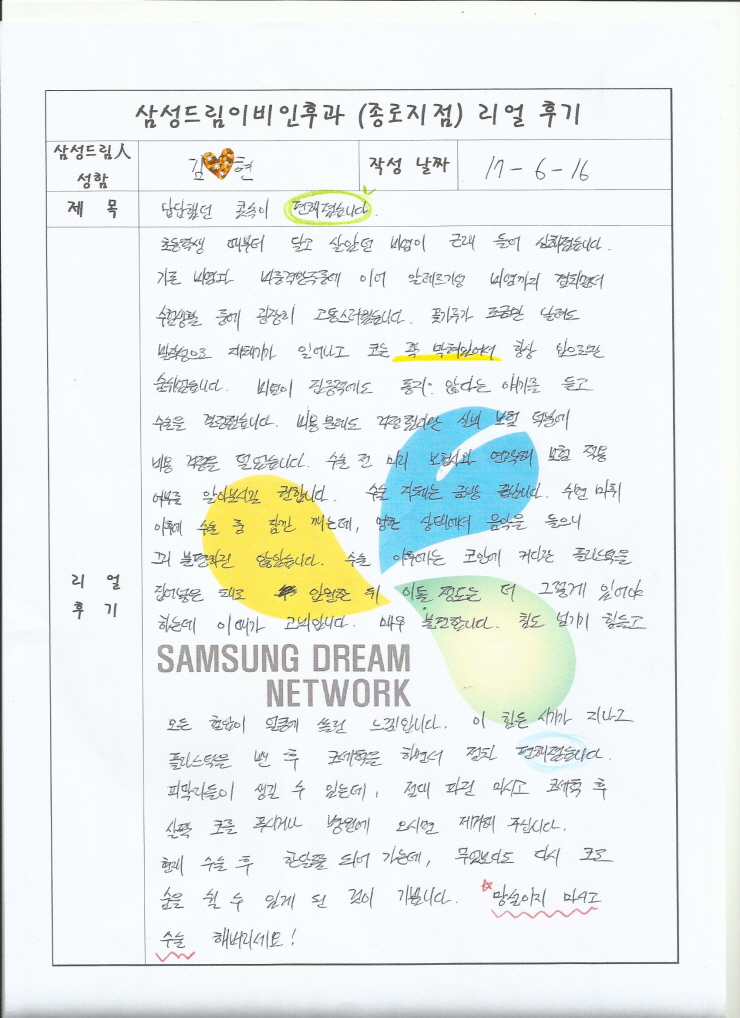 삼성드림이비인후과 (종로지점) 리얼 후기
삼성드림人 성함
김 현
작성 날짜
17-6-16
제 목
답답했던 콧속이 편해졌습니다.
리 얼 후 기
초등학생 때부터 달고 살았던 비염이 근래 들어 심해졌습니다.
기존 비염과 비중격만곡증에 이어 알레르기성 비염까지 겹치면서
수험생활 중에 굉장히 고통스러웠습니다. 꽃가루가 조금만 날려도
발작성으로 재채기가 일어나고 코는 꽉 막혀있어서 항상 입으로만
숨쉬었습니다. 비염이 집중력에도 좋지 않다는 얘기를 듣고
수술을 결정했습니다. 비용 문제도 걱정했지만 실비 보험 덕분에
비용 걱정을 덜었습니다. 수술 전 미리 보험사와 연락해 보험 적용
여부를 알아보시길 권합니다. 수술 자체는 금방 끝납니다. 수면 마취
이후에 수술 중 잠깐 깨는데, 멍한 상태에서 음악을 들으니
그리 불편하진 않았습니다. 수술 이후에는 코안에 커다란 플라스틱을
집어넣은 채로 입원한 뒤 이틀 정도는 더 그렇게 있어야
하는데 이때가 고비입니다. 매우 불편합니다. 침도 넘기기 힘들고
SAMSUNG DREAM
NETWORK
모든 혈압이 얼굴에 쏠린 느낌입니다. 이 힘든 시기가 지나고
플라스틱을 뺀 후 코세척을 하면서 점차 편해졌습니다.
피딱지들이 생길 수 있는데, 절대 파진 마시고 코세척 후
살짝 코를 푸시거나 병원에 오시면 제거해 주십니다.
현재 수술 후 한달쯤 되어 가는데, 무엇보다도 다시 코로
숨을 쉴 수 있게 된 점이 기쁩니다. 망설이지 마시고
수술 해버리세요!